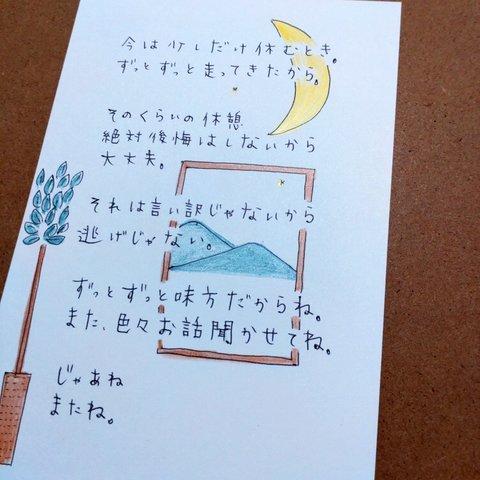 今は少しだけ休むとき。
ずっとずっと走ってきたから。
そのくらいの休憩
絶対後悔はしないから
大丈夫。
それは言い訳じゃないから
逃げじゃない。
ずっとずっと味方だからね。
また、色々お話聞かせてね。
じゃあね
またね。